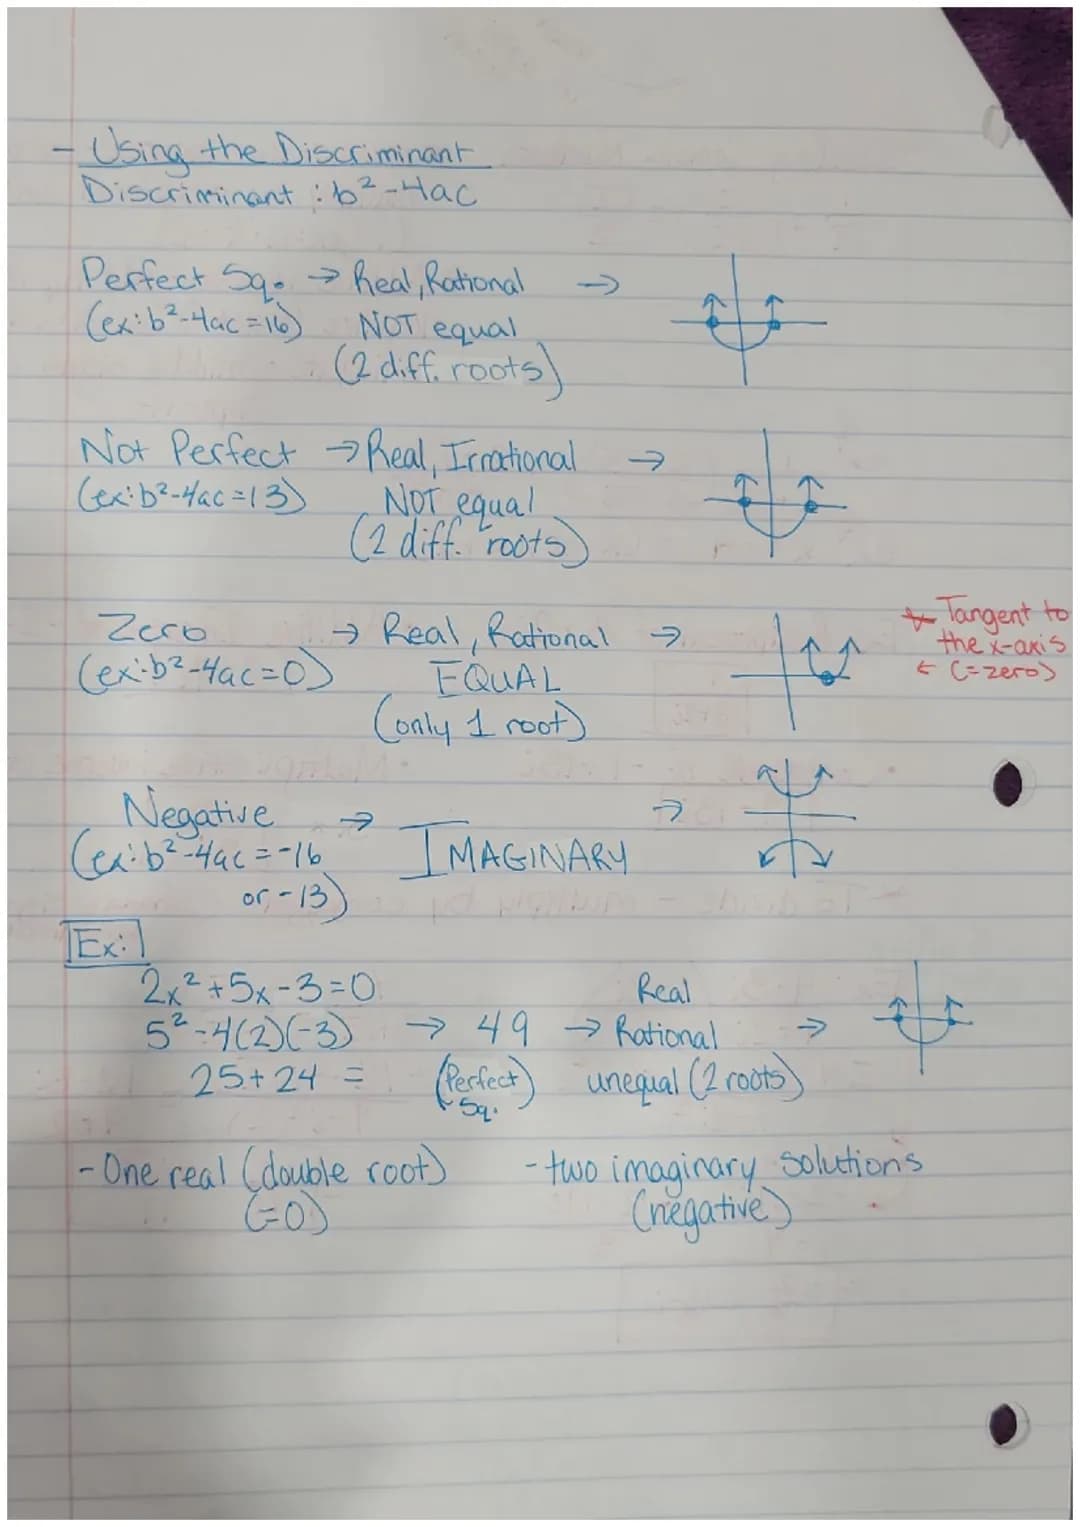 - Using the Discriminant
Discriminant : b²-4ac
Perfect Sq. → Real, Rational →
(ex: b²-4ac=16) NOT equal
(2 diff. roots)
Not Perfect → Real, Irrational →
(ex: b²-4ac=13) NOT equal
(2 diff. roots)
Zero → Real, Rational →
(ex: b²-4ac=0) EQUAL
(only 1 root)
* Tangent to
the x-axis
← (=zero)
Negative → IMAGINARY →
(ex: b²-4ac=-16
or -13)
Ex:
2x²+5x-3=0
5²-4(2)(-3) → 49 → Rational →
Real
25+24 = (Perfect Sq.) unequal (2 roots)
- One real (double root) - two imaginary solutions
(=0) (negative)